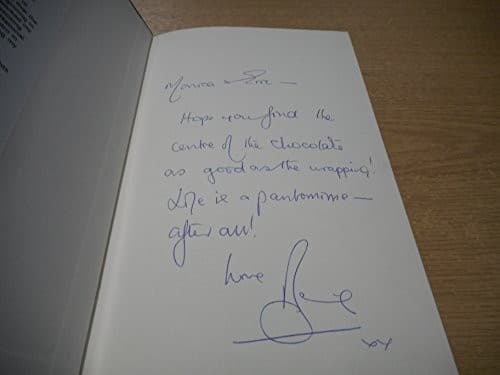 Monica &
Hope you find the
centre of the chocolate
as good as the wrapping!
Life is a pantomime —
after all!
Love
xx